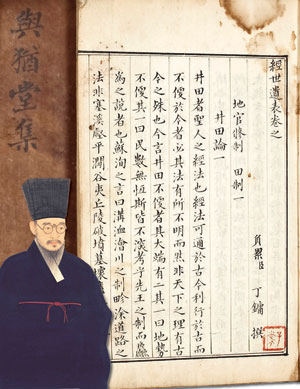 與猶堂集
經世遺表卷之
地官修制　田制一
負罪臣　丁鏞　撰
井田論一
井田者聖人之經法也經法可通於古今利行於而
不便於今者必其法有所不明而然非天下之理有古
今之殊也今言井田不便者其大端有二其一曰地勢
不便其一曰民數無恒斯皆不深考乎先王之制而
為之說者也蘇洵之言曰溝洫澮川之制畛涂道路之
法非塞溪壑平澗谷夷丘陵破墳墓壞